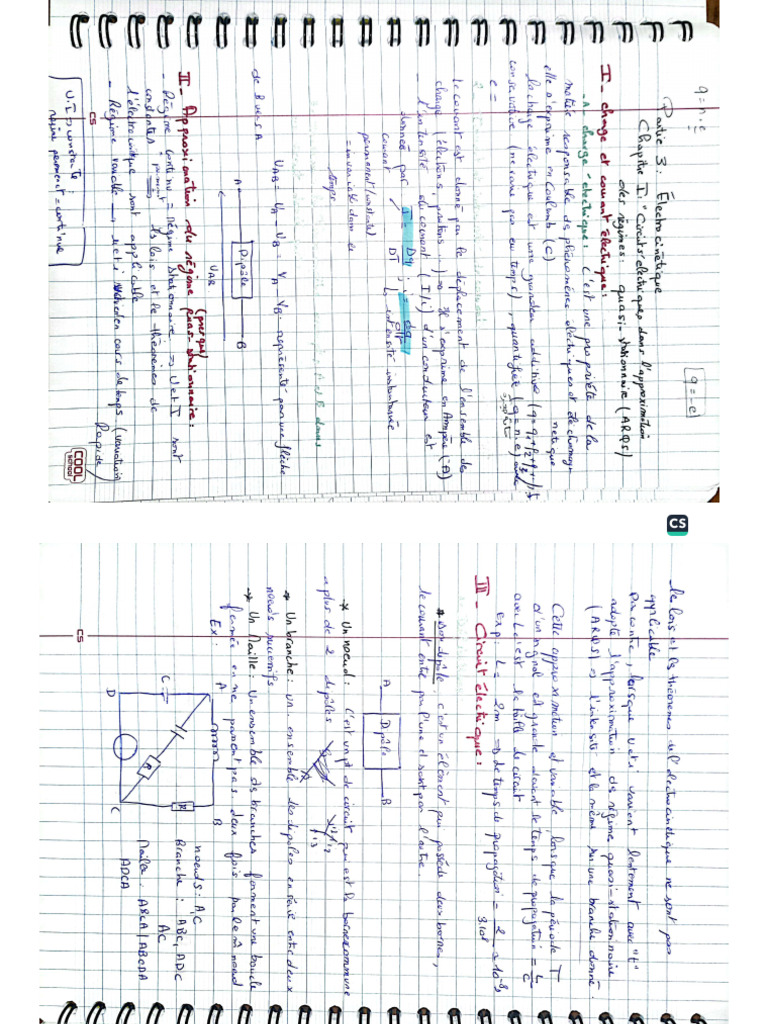 q = n.e
q = -e
Partie 3: Électrocinétique
Chapitre I: "Circuits électriques dans l'approximation
des régimes: quasi-stationnaire (ARQS)
I - charge et courant électrique:
- A - charge électrique: C'est une propriété de la
matière responsable des phénomènes électriques et de
elle s'exprime en coulomb (C)
La charge électrique est une grandeur additive
conservative (ne varie pas au temps), quantifiée (q = n.e)
e =
Le courant est donné par le déplacement de l'ensemble des
charge (électrons, protons ...) → s'exprime en Ampère (A)
- L'intensité du courant (I/i) d'un conducteur est
donnée par I = DQ / DT ; i = dq / dt
courant
intensité instantanée
permanent (constante)
= invariable dans le
temps
UAB = VA - VB = VA - VB représenté par une flèche
de B vers A
A
Dipôle
B
UAB
II - Approximation du régime quasi-stationnaire:
(presque)
- Régime continu = régime stationnaire → U et I sont
constantes → les lois et les théorèmes de
permanent
l'électrocinétique sont applicable
- Régime variable → u et i varient en cours de temps (variation
Rapide)
U, I → constante:
régime permanent = continue
CS
COOL
school
CS
les lois et les théorèmes de l'électrocinétique ne sont pas
applicable
Par contre, lorsque u et i varient lentement avec "t"
adopte l'approximation du régime quasi-stationnaire
(ARQS) → l'intensité est la même sur une branche donné.
Cette approximation est variable lorsque la période T
d'un signal est grande devant le temps de propagation = L/C
avec L c'est la taille de circuit
exp: L = 2m → Δ de temps de propagation = 2 / 3.10⁸ ≈ 10⁻⁸s
III - Circuit électrique:
* Un dipôle c'est un élément qui possède deux bornes,
le courant entre par l'une et sort par l'autre.
A
Dipôle
B
* Un noeud: c'est un pt de circuit qui est la borne commune
a plus de 2 dipôles
i1
i2
i3
* Un branche: un ensemble des dipôles en série entre deux
noeuds successifs
→ Un Maille: Un ensemble de branches forment une boucle
fermée en ne passant pas deux fois par le m̂ noeud
Ex:
A
B
C
D
C
R
R
noeuds: A, C
Branche: ABC, ADC
AC
Maille: ABCA / ABCDA
ADCA
CS